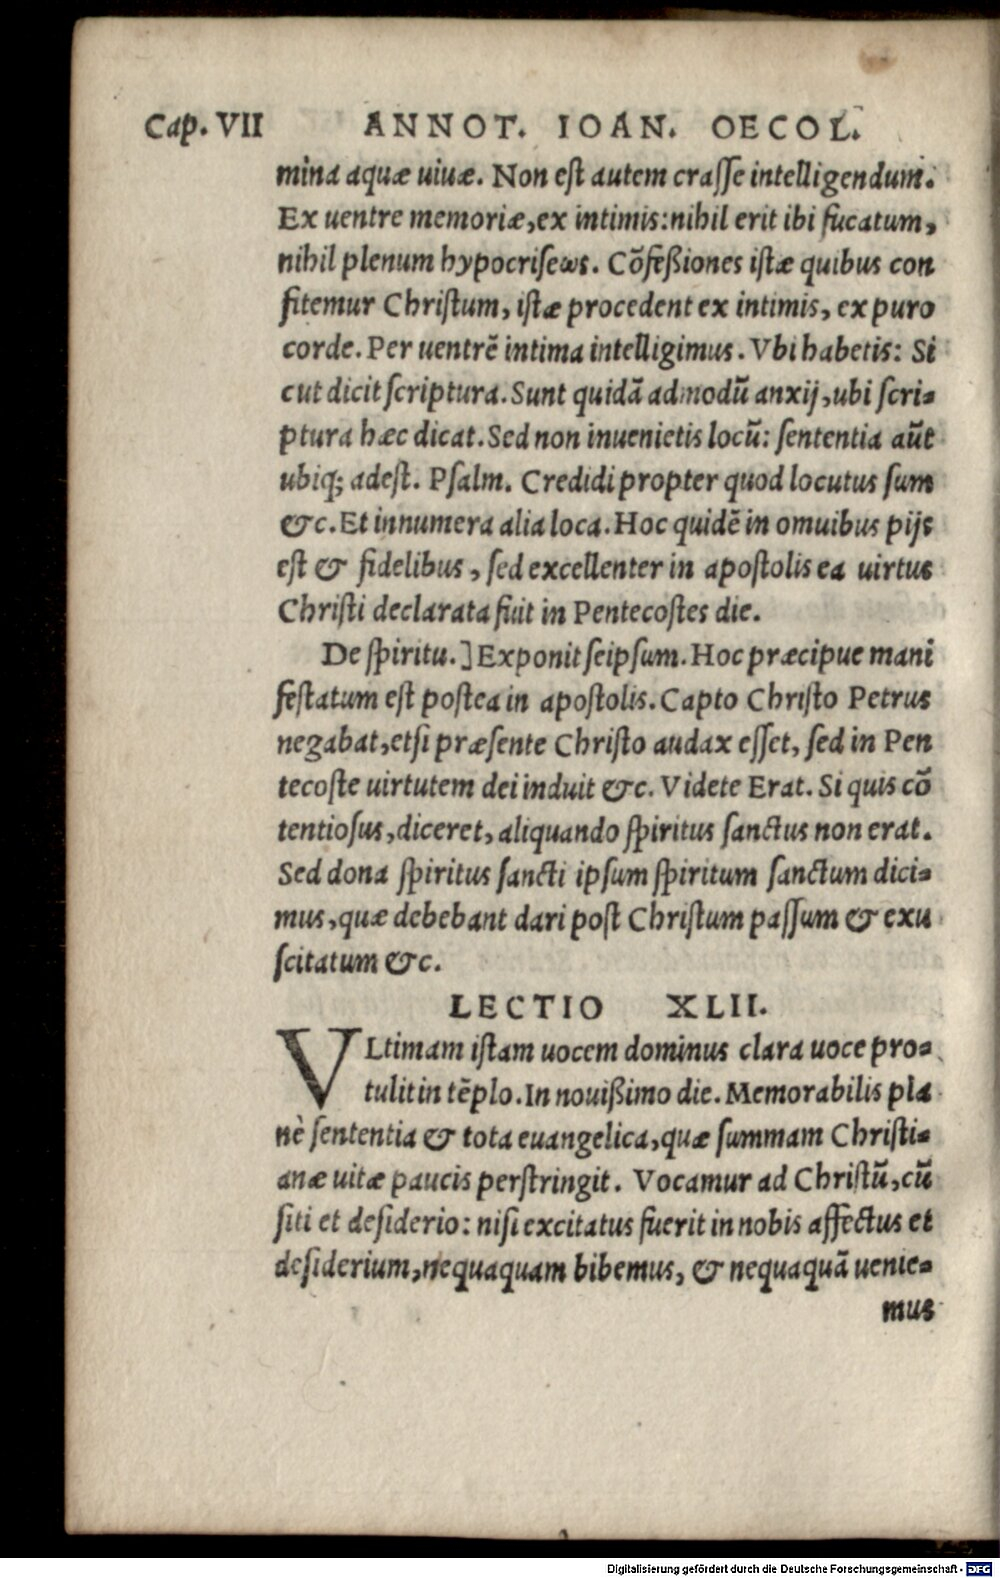 Cap. VII ANNOT. IOAN. OECOL.
mina aquæ uiuæ. Non est autem crasse intelligendum.
Ex uentre memoriæ, ex intimis: nihil erit ibi fucatum,
nihil plenum hypocriseωs. Cõfeßiones istæ quibus con
fitemur Christum, istæ procedent ex intimis, ex puro
corde. Per uentrẽ intima intelligimus. Vbi habetis: Si
cut dicit scriptura. Sunt quidã admodũ anxij, ubi scri-
ptura hæc dicat. Sed non inuenietis locũ: sententia aũt
ubiq; adest. Psalm. Credidi propter quod locutus sum
&c. Et innumera alia loca. Hoc quidẽ in omuibus pijs
est & fidelibus, sed excellenter in apostolis ea uirtus
Christi declarata fuit in Pentecostes die.
De spiritu.] Exponit seipsum. Hoc præcipue mani
festatum est postea in apostolis. Capto Christo Petrus
negabat, etsi præsente Christo audax esset, sed in Pen
tecoste uirtutem dei induit &c. Videte Erat. Si quis cõ
tentiosus, diceret, aliquando spiritus sanctus non erat.
Sed dona spiritus sancti ipsum spiritum sanctum dici-
mus, quæ debebant dari post Christum passum & exu
scitatum &c.
LECTIO XLII.
VLtimam istam uocem dominus clara uoce pro-
tulit in tẽplo. In nouißimo die. Memorabilis pla
nè sententia & tota euangelica, quæ summam Christi-
anæ uitæ paucis perstringit. Vocamur ad Christũ, cũ
siti et desiderio: nisi excitatus fuerit in nobis affectus et
desiderium, nequaquam bibemus, & nequaquã uenie-
mus
Digitalisierung gefördert durch die Deutsche Forschungsgemeinschaft - DFG